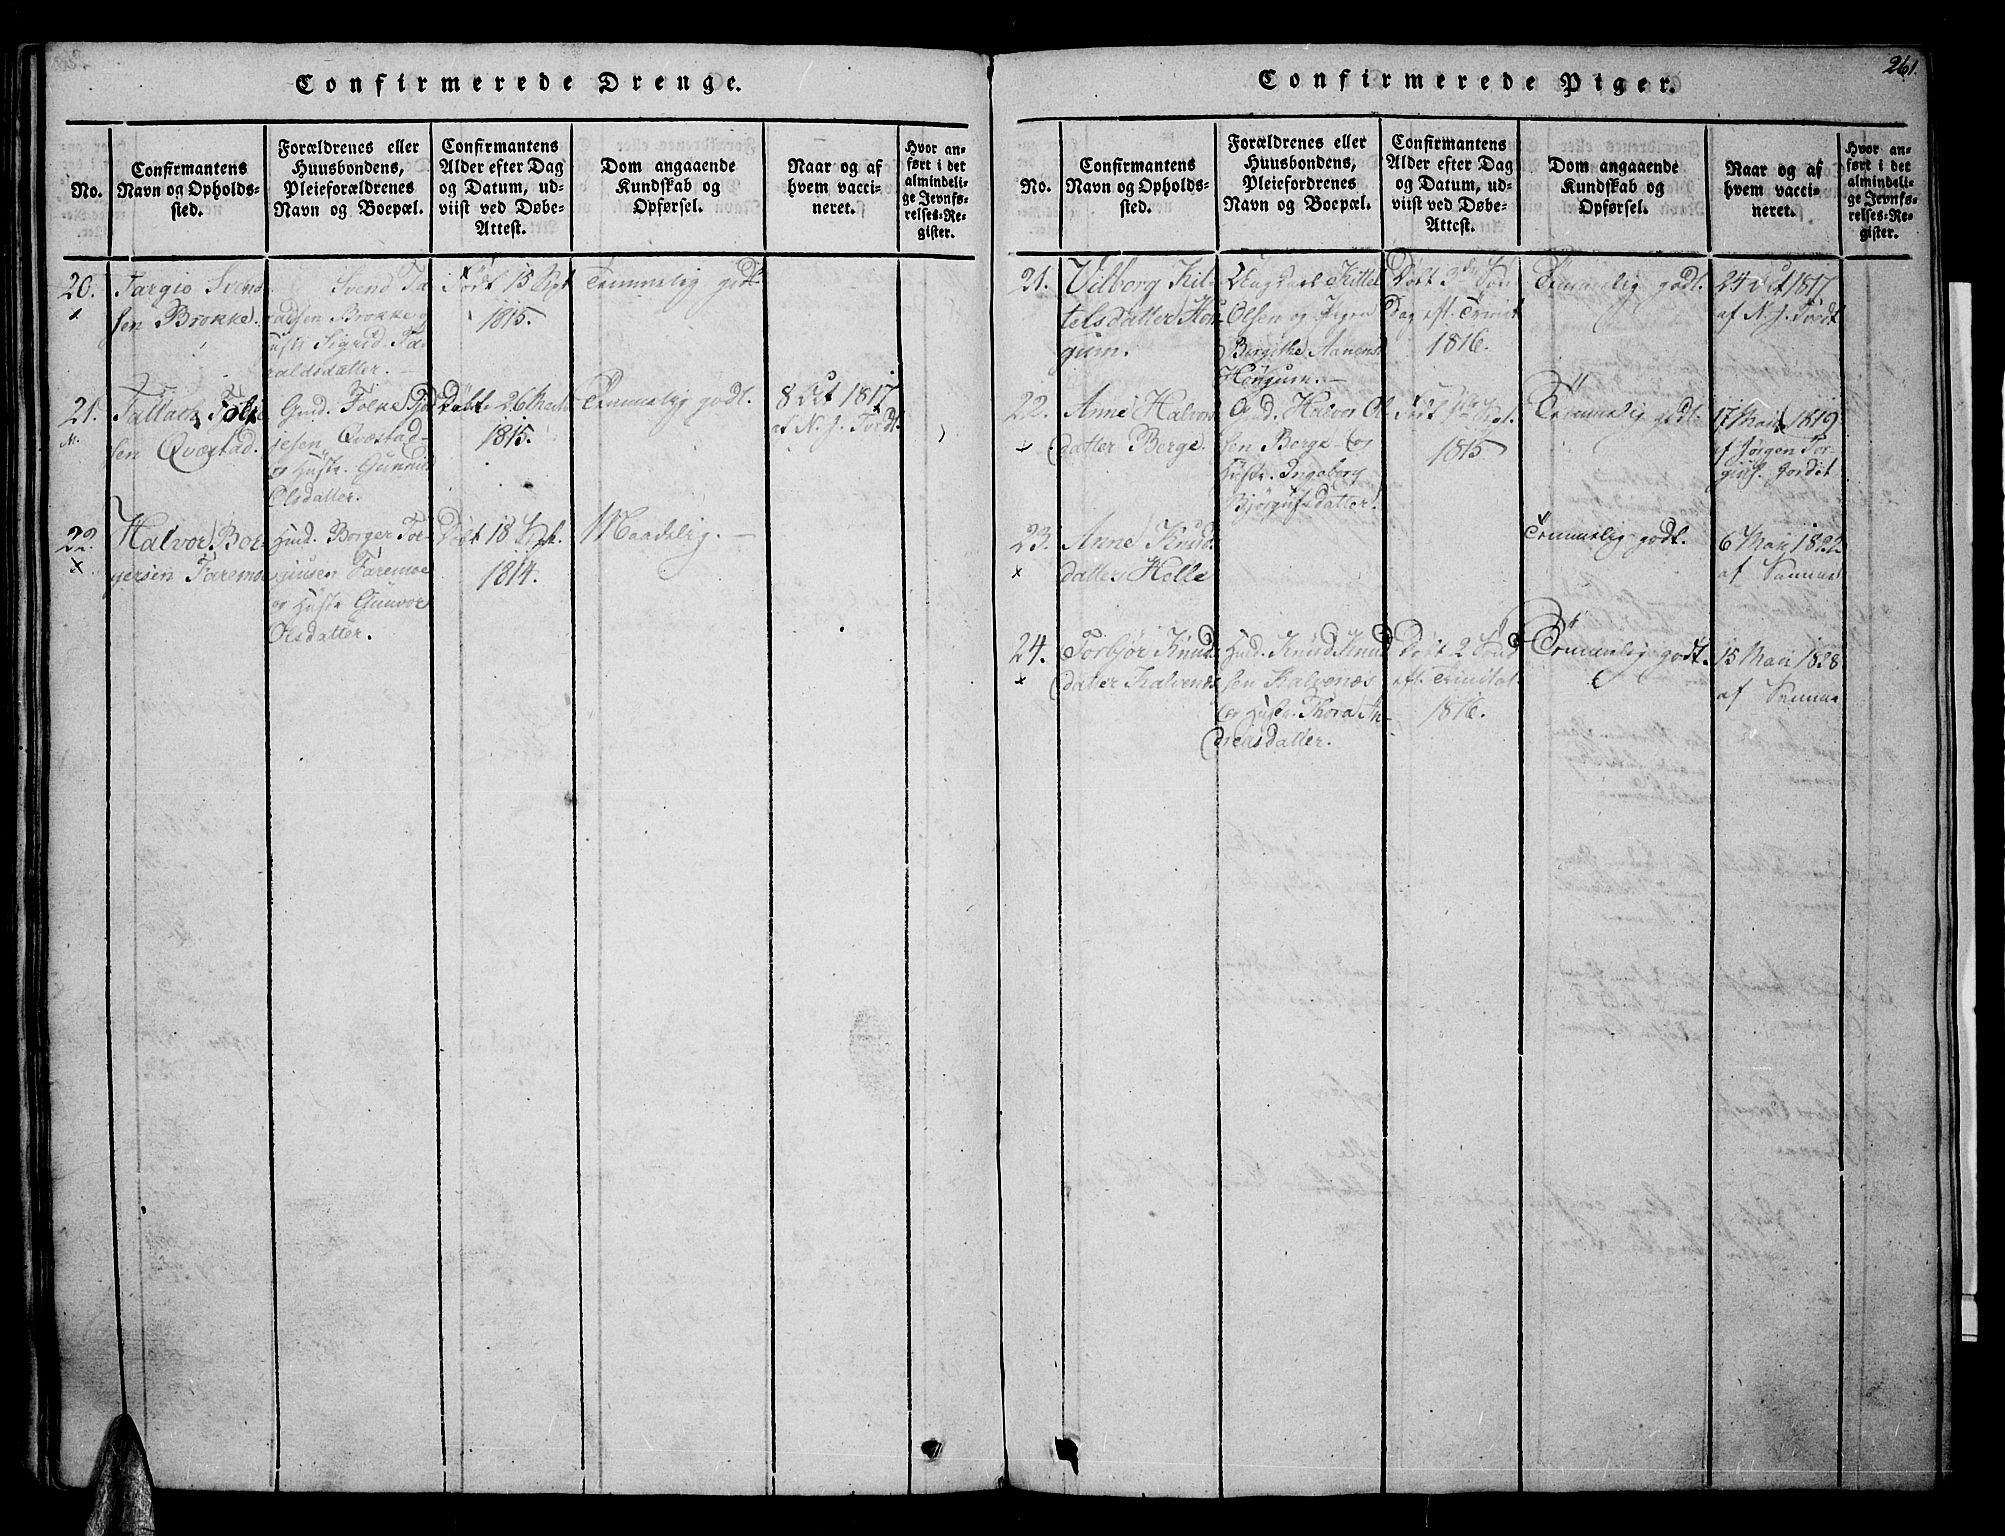 Confirmerede Drenge.
No.
Confirmantens
Navn og Opholds-
sted.
Forældrenes eller
Huusbondens,
Pleieforældrenes
Navn og Boepæl.
Confirmantens
Alder efter Dag
og Datum, ud-
viist ved Døbe-
Attest.
Dom angaaende
Kundskab og
Opførsel.
Naar og af
hvem vacci-
neret.
Hvor an-
ført i det
almindeli-
ge Jevnfø-
relses-Re-
gister.
20.
Targio Svens
sen Brokke.
Svend Ta
raldsen Brokke
Hustr Sigrid Ta-
raldsdatter.
Født 15 Sept
1815.
Temmelig godt
21.
Tallach Folke
sen Qvæstad.
Gmd. Folke
Qvæstad
og Hustr. Gunnild
Olsdatter.
Døbt 26
1815.
Temmelig godt.
8 Oct 1817
af N. J. Tvedt.
22.
Halvor Bor-
gersen Faremoe
Huusmd. Borger Tor-
giusen Faremoe
og Hustr Gunvor
Olsdatter.
Døbt 18 Sept.
1814.
Maadelig.
Confirmerede Piger.
261.
No.
Confirmantens
Navn og Opholds-
sted.
Forældrenes eller
Huusbondens,
Pleiefordrenes
Navn og Boepæl.
Confirmantens
Alder efter Dag
og Datum, ud-
viist ved Døbe-
Attest.
Dom angaaende
Kundskab og
Opførsel.
Naar og af
hvem vacci-
neret.
Hvor an-
ført i det
almindeli-
ge Jevnfø-
relses-Re-
gister.
21.
Vilborg Kit-
telsdatter Hon-
gum.
Ungkarl Kittel
Olsen og
Birgithe Aanens
Hongum.
Døbt 3de Søn
Dag eft. Trinit
1816.
Temmelig godt.
24 Oct 1817
af N. J. Tvedt
22.
Anne Halvors
datter Berge
Gmd. Halvor Ol
sen Berge og
Hustr. Ingeborg
Bjørgufsdatter.
Født 1ste Sept.
1815
Temmelig godt.
17 Mai 1819
af Jørgen Tor-
giuss. Jordet
23.
Anne Knud.
datter Helle
Temmelig godt.
6 Mai 1822
af Samme
24.
Torbjør Knud
datter Kalvenæs
Huusmd. Knud Knud
sen Kalvenæs
og Hustr. Thora An-
dreasdatter.
Døbt 2 Sønd
eft. Trinitat.
1816.
Temmelig godt.
15 Mai 1828
af Samme